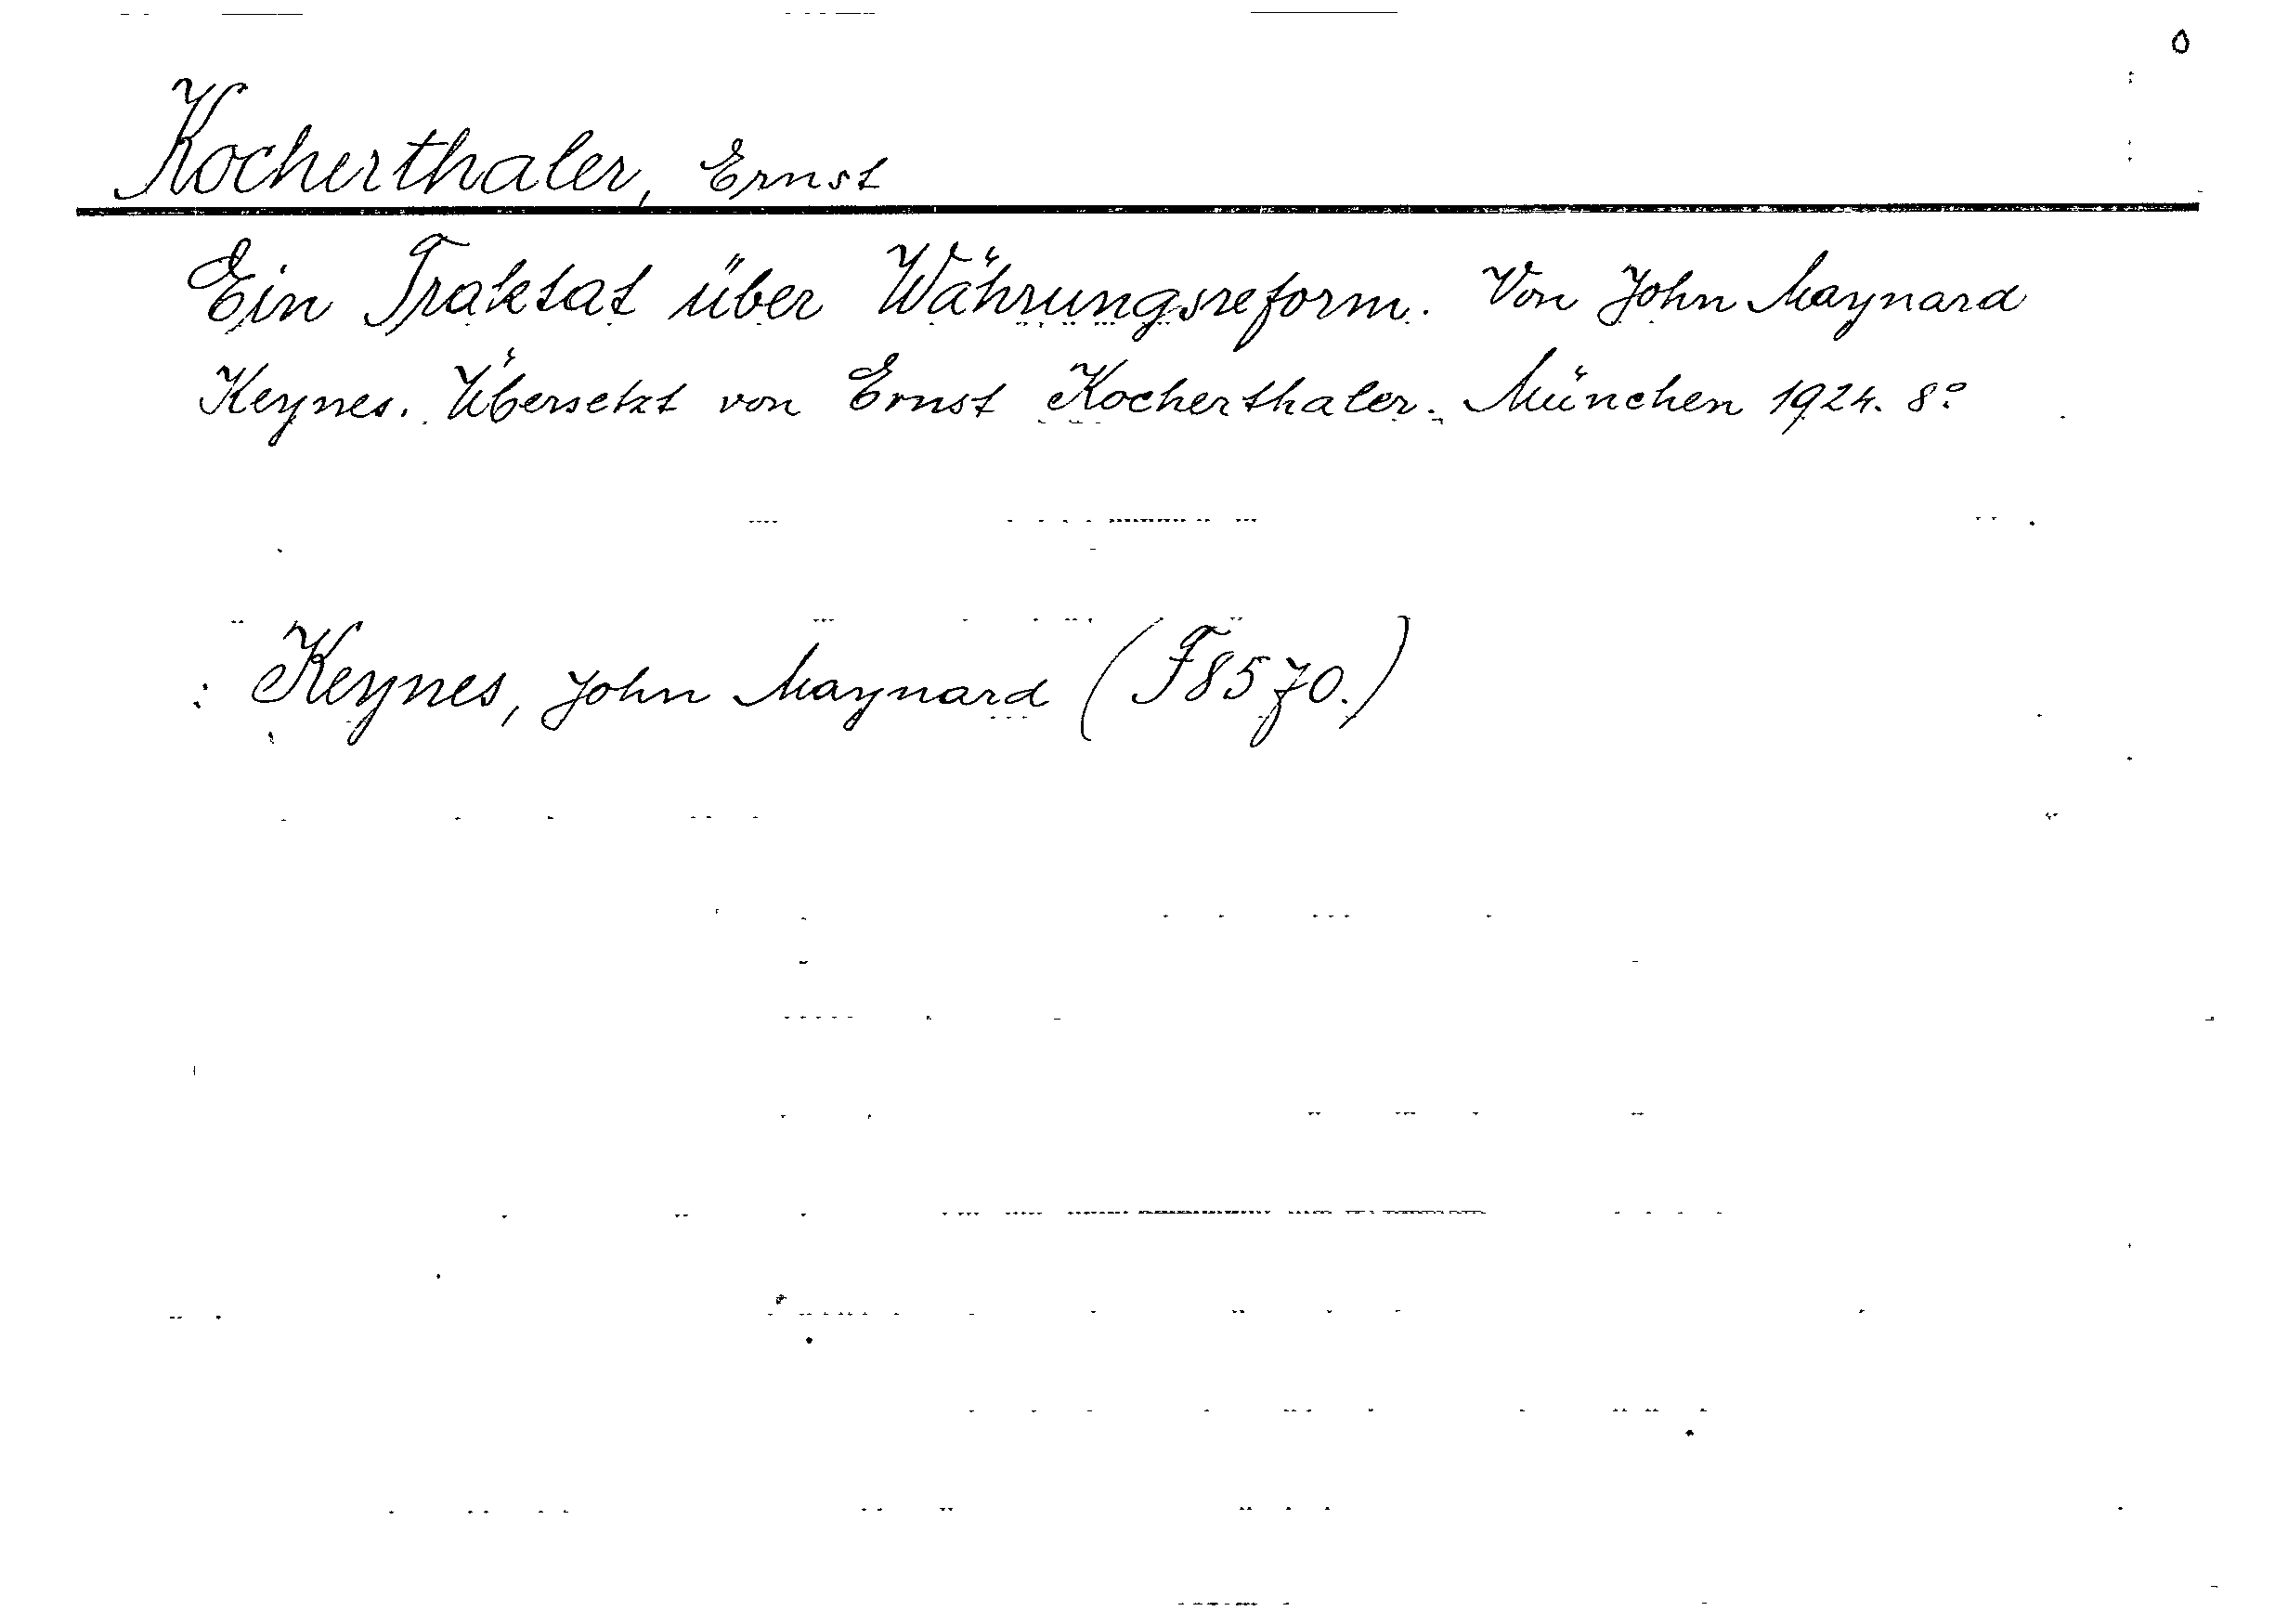 Kocherthaler, Ernst
Ein Traktat über Währungsreform. Von John Maynard
Keynes. Übersetzt von Ernst Kocherthaler. München 1924. 8°
: Keynes, John Maynard (F8570.)